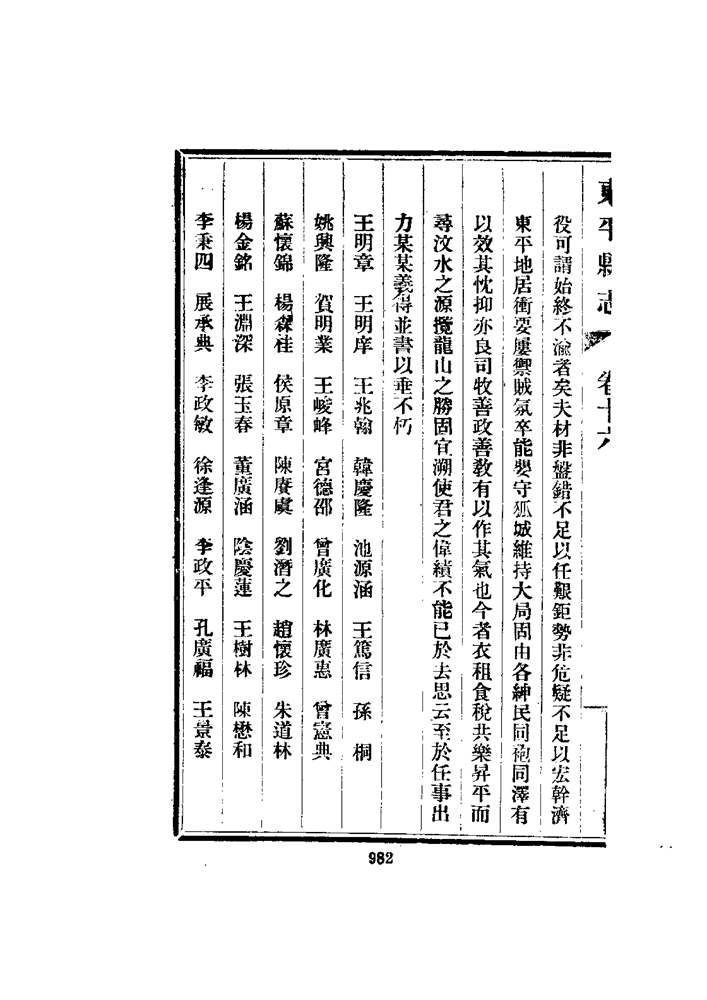 東平縣志 卷十六
役可謂始終不渝者矣夫材非盤錯不足以任艱鉅勢非危疑不足以宏幹濟
東平地居衝要屢禦賊氛卒能嬰守孤城維持大局固由各紳民同袍同澤有
以效其忱抑亦良司牧善政善敎有以作其氣也今者衣租食稅共樂昇平而
尋汶水之源攬龍山之勝固宜溯使君之偉績不能已於去思云至於任事出
力某某義得並書以垂不朽
王明章 王明庠 王兆翰 韓慶隆 池源涵 王篤信 孫 桐
姚興隆 賀明業 王峻峰 宮德邵 曾廣化 林廣惠 曾憲典
蘇懷錦 楊森桂 侯原章 陳賡虞 劉潛之 趙懷珍 朱道林
楊金銘 王淵深 張玉春 董廣涵 陰慶蓮 王樹林 陳懋和
李秉四 展承典 李政敏 徐逢源 李政平 孔廣福 王景泰
982